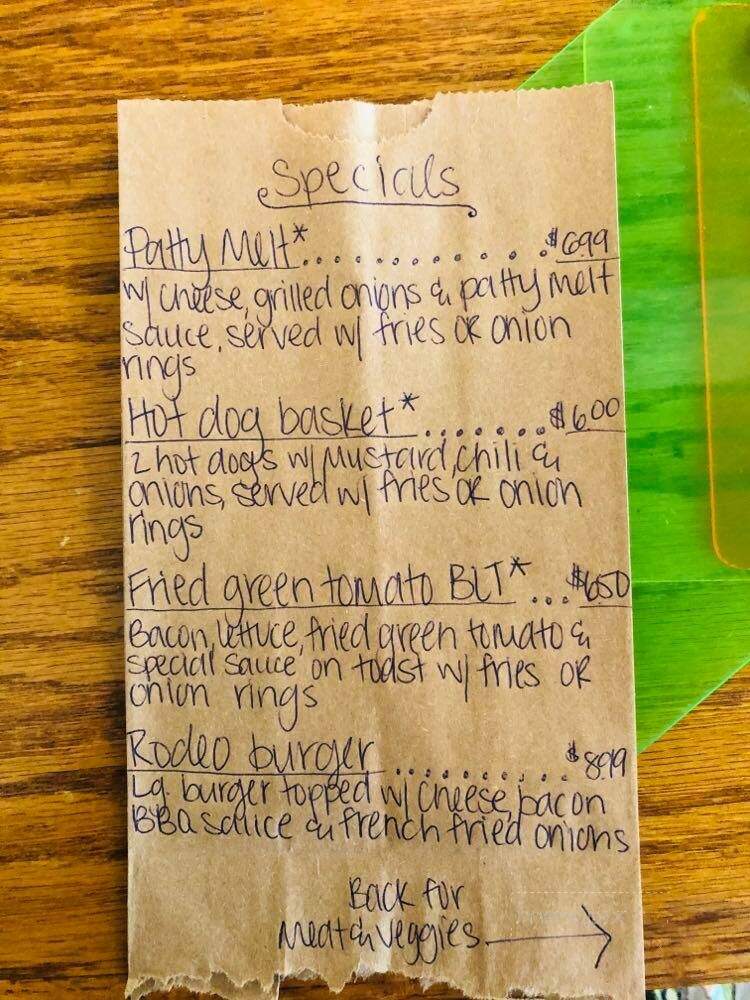 Specials
Patty Melt*............$6.99
w/ cheese, grilled onions & patty melt
sauce, served w/ fries OR onion
rings
Hot dog basket*.......$6.00
2 hot dogs w/ mustard, chili &
onions, served w/ fries OR onion
rings
Fried green tomato BLT*...$6.50
Bacon, lettuce, fried green tomato &
special sauce on toast w/ fries OR
onion rings
Rodeo burger..........$8.99
Lg. burger topped w/ cheese, bacon
BBQ sauce & french fried onions
Back for
meat & veggies